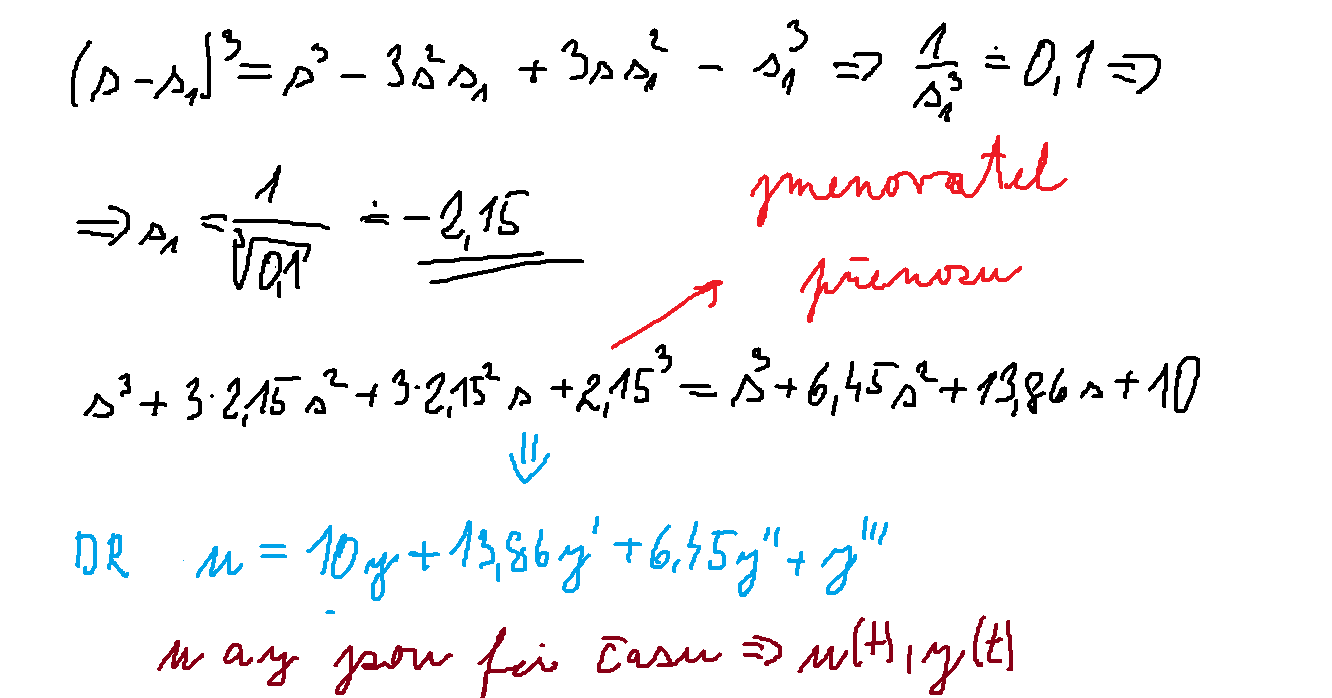 (s-s₁)³ = s³ - 3s²s₁ + 3ss₁² - s₁³ ⇒ 1/s₁³ ≐ 0,1 ⇒
⇒ s₁ = 1/∛0,1 ≐ -2,15
jmenovatel
přenosu
s³ + 3·2,15s² + 3·2,15²s + 2,15³ = s³ + 6,45s² + 13,86s + 10
DR u = 10y + 13,86y' + 6,45y'' + y'''
u a y jsou fci času ⇒ u(t), y(t)